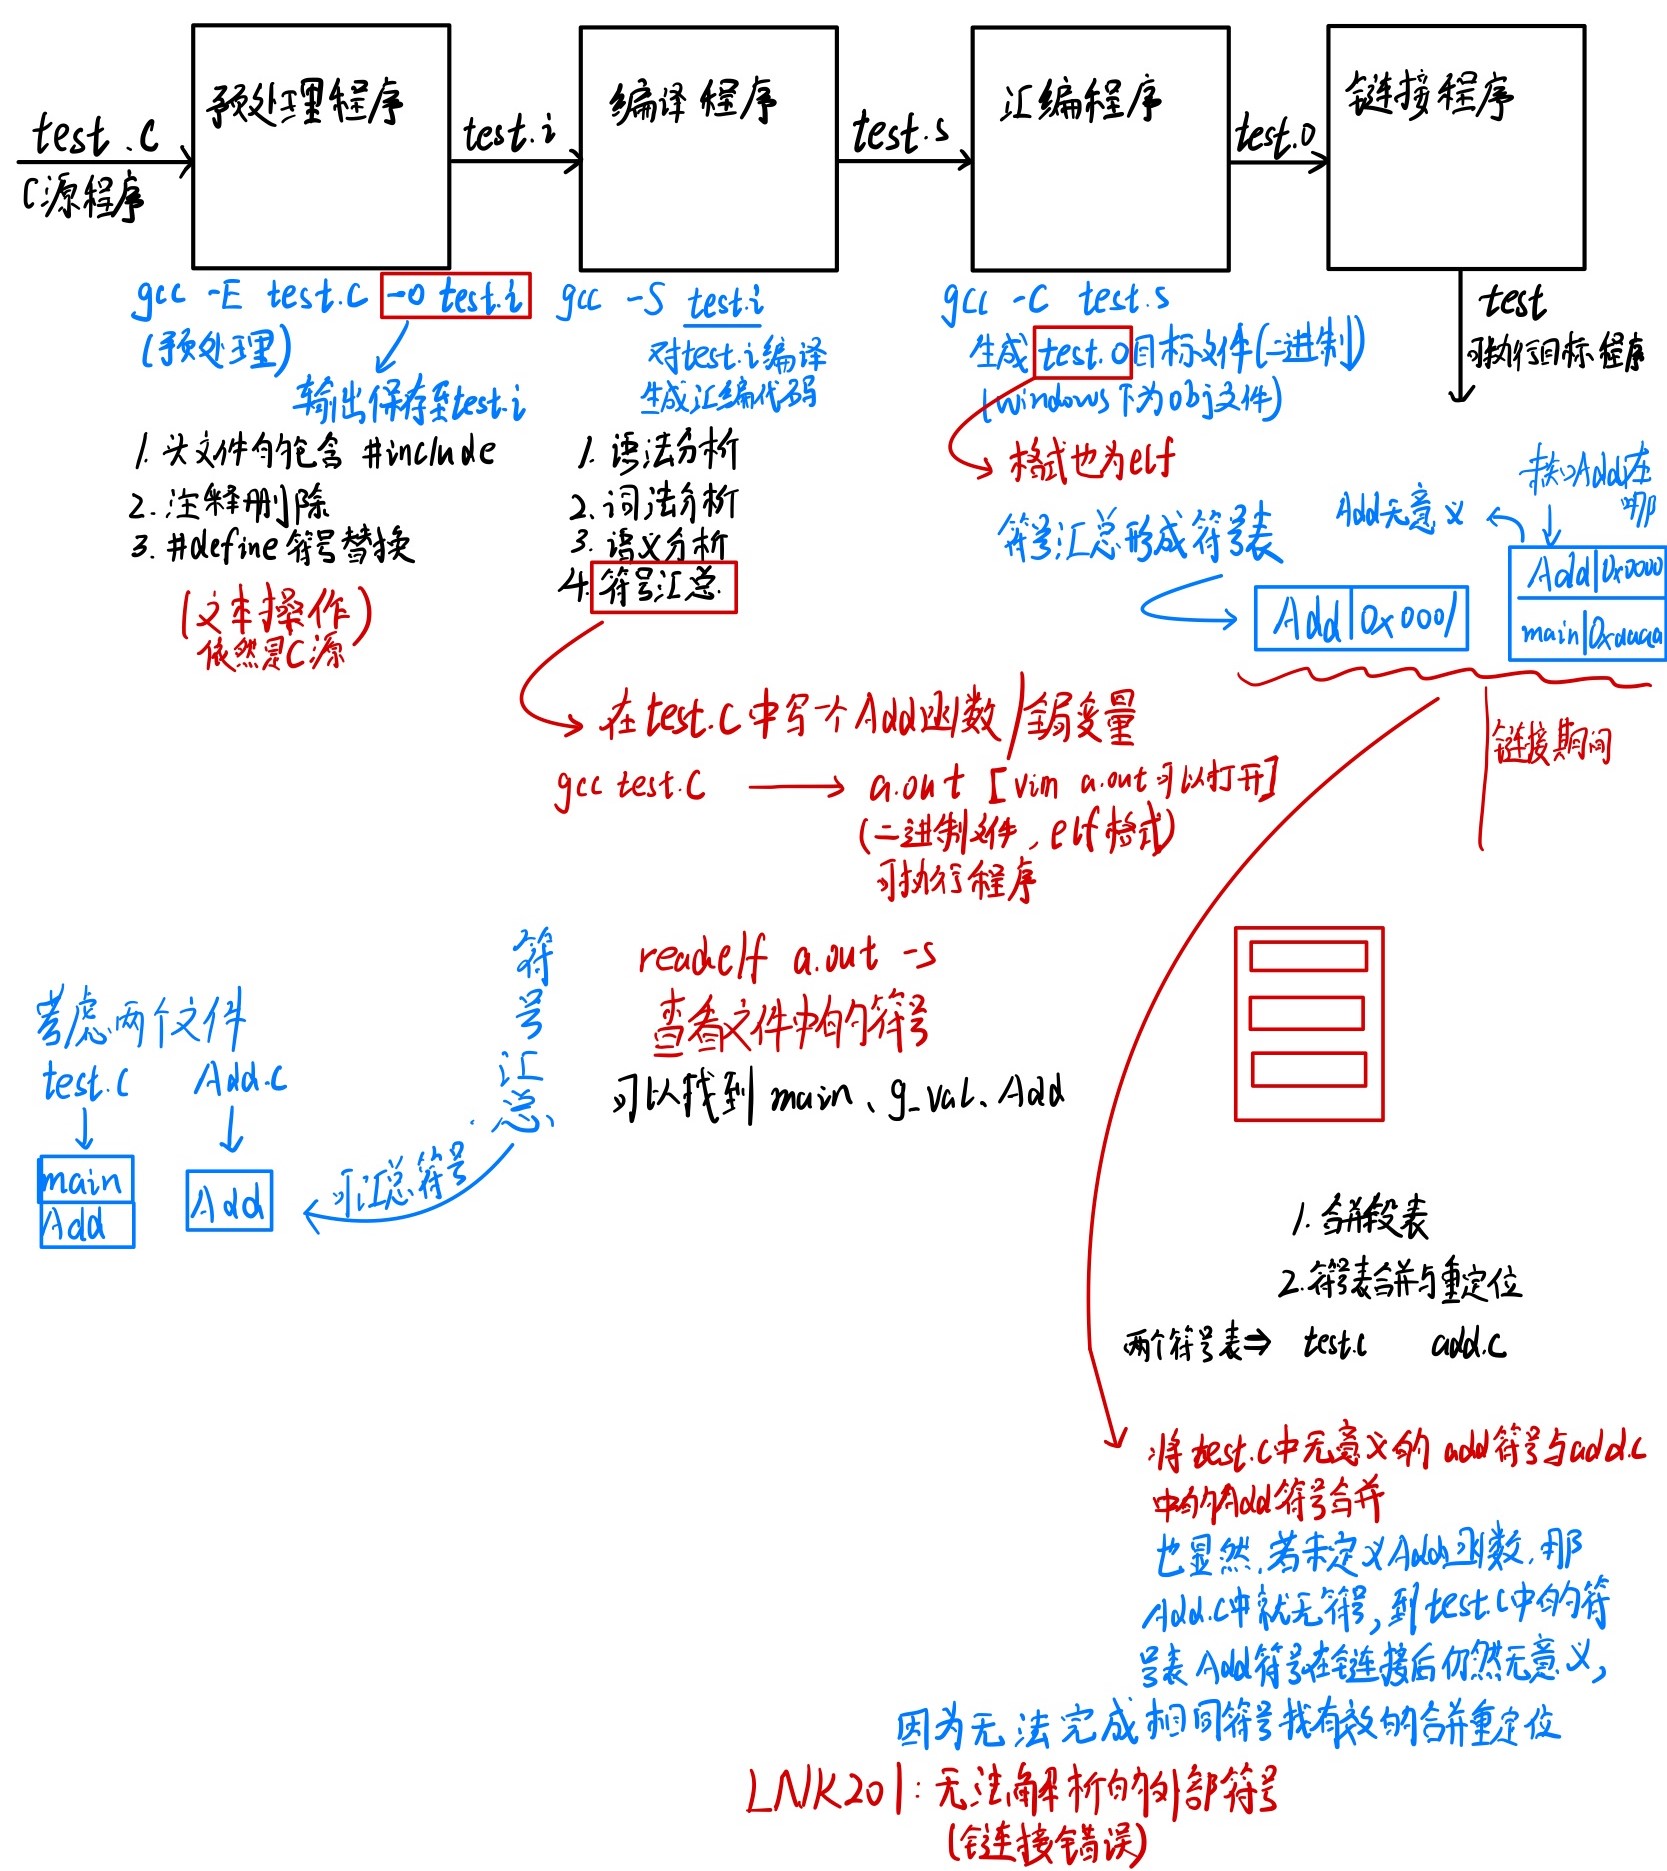 test.c
C源程序
预处理程序
test.i
编译程序
test.s
汇编程序
test.o
链接程序
test
可执行目标程序
gcc -E test.c -o test.i
(预处理)
输出保存至test.i
1. 头文件的包含 #include
2. 注释删除
3. #define 符号替换
(文本操作)
依然是C源
gcc -S test.i
对test.i编译
生成汇编代码
1. 语法分析
2. 词法分析
3. 语义分析
4. 符号汇总
gcc -c test.s
生成test.o目标文件(二进制)
(windows下为obj文件)
格式也为elf
符号汇总形成符号表
Add|0x0001
Add无意义
Add在
哪
Add|0x0000
main|0xaaaa
链接期间
在test.c中写个Add函数/全局变量
gcc test.c
a.out [vim a.out可以打开]
(二进制文件, elf格式)
可执行程序
readelf a.out -s
查看文件中的符号
可以找到main、g_val、Add
符号汇总
可汇总符号
考虑两个文件
test.c Add.c
main
Add
Add
1. 合并段表
2. 符号表合并与重定位
两个符号表⇒ test.c add.c
将test.c中无意义的add符号与add.c
中的Add符号合并
也显然,若未定义Add函数,那
Add.c中就无符号,到test.c中的符
号表Add符号在链接后仍然无意义,
因为无法完成相同符号找有效的合并重定位
LNK201: 无法解析的外部符号
(链接错误)